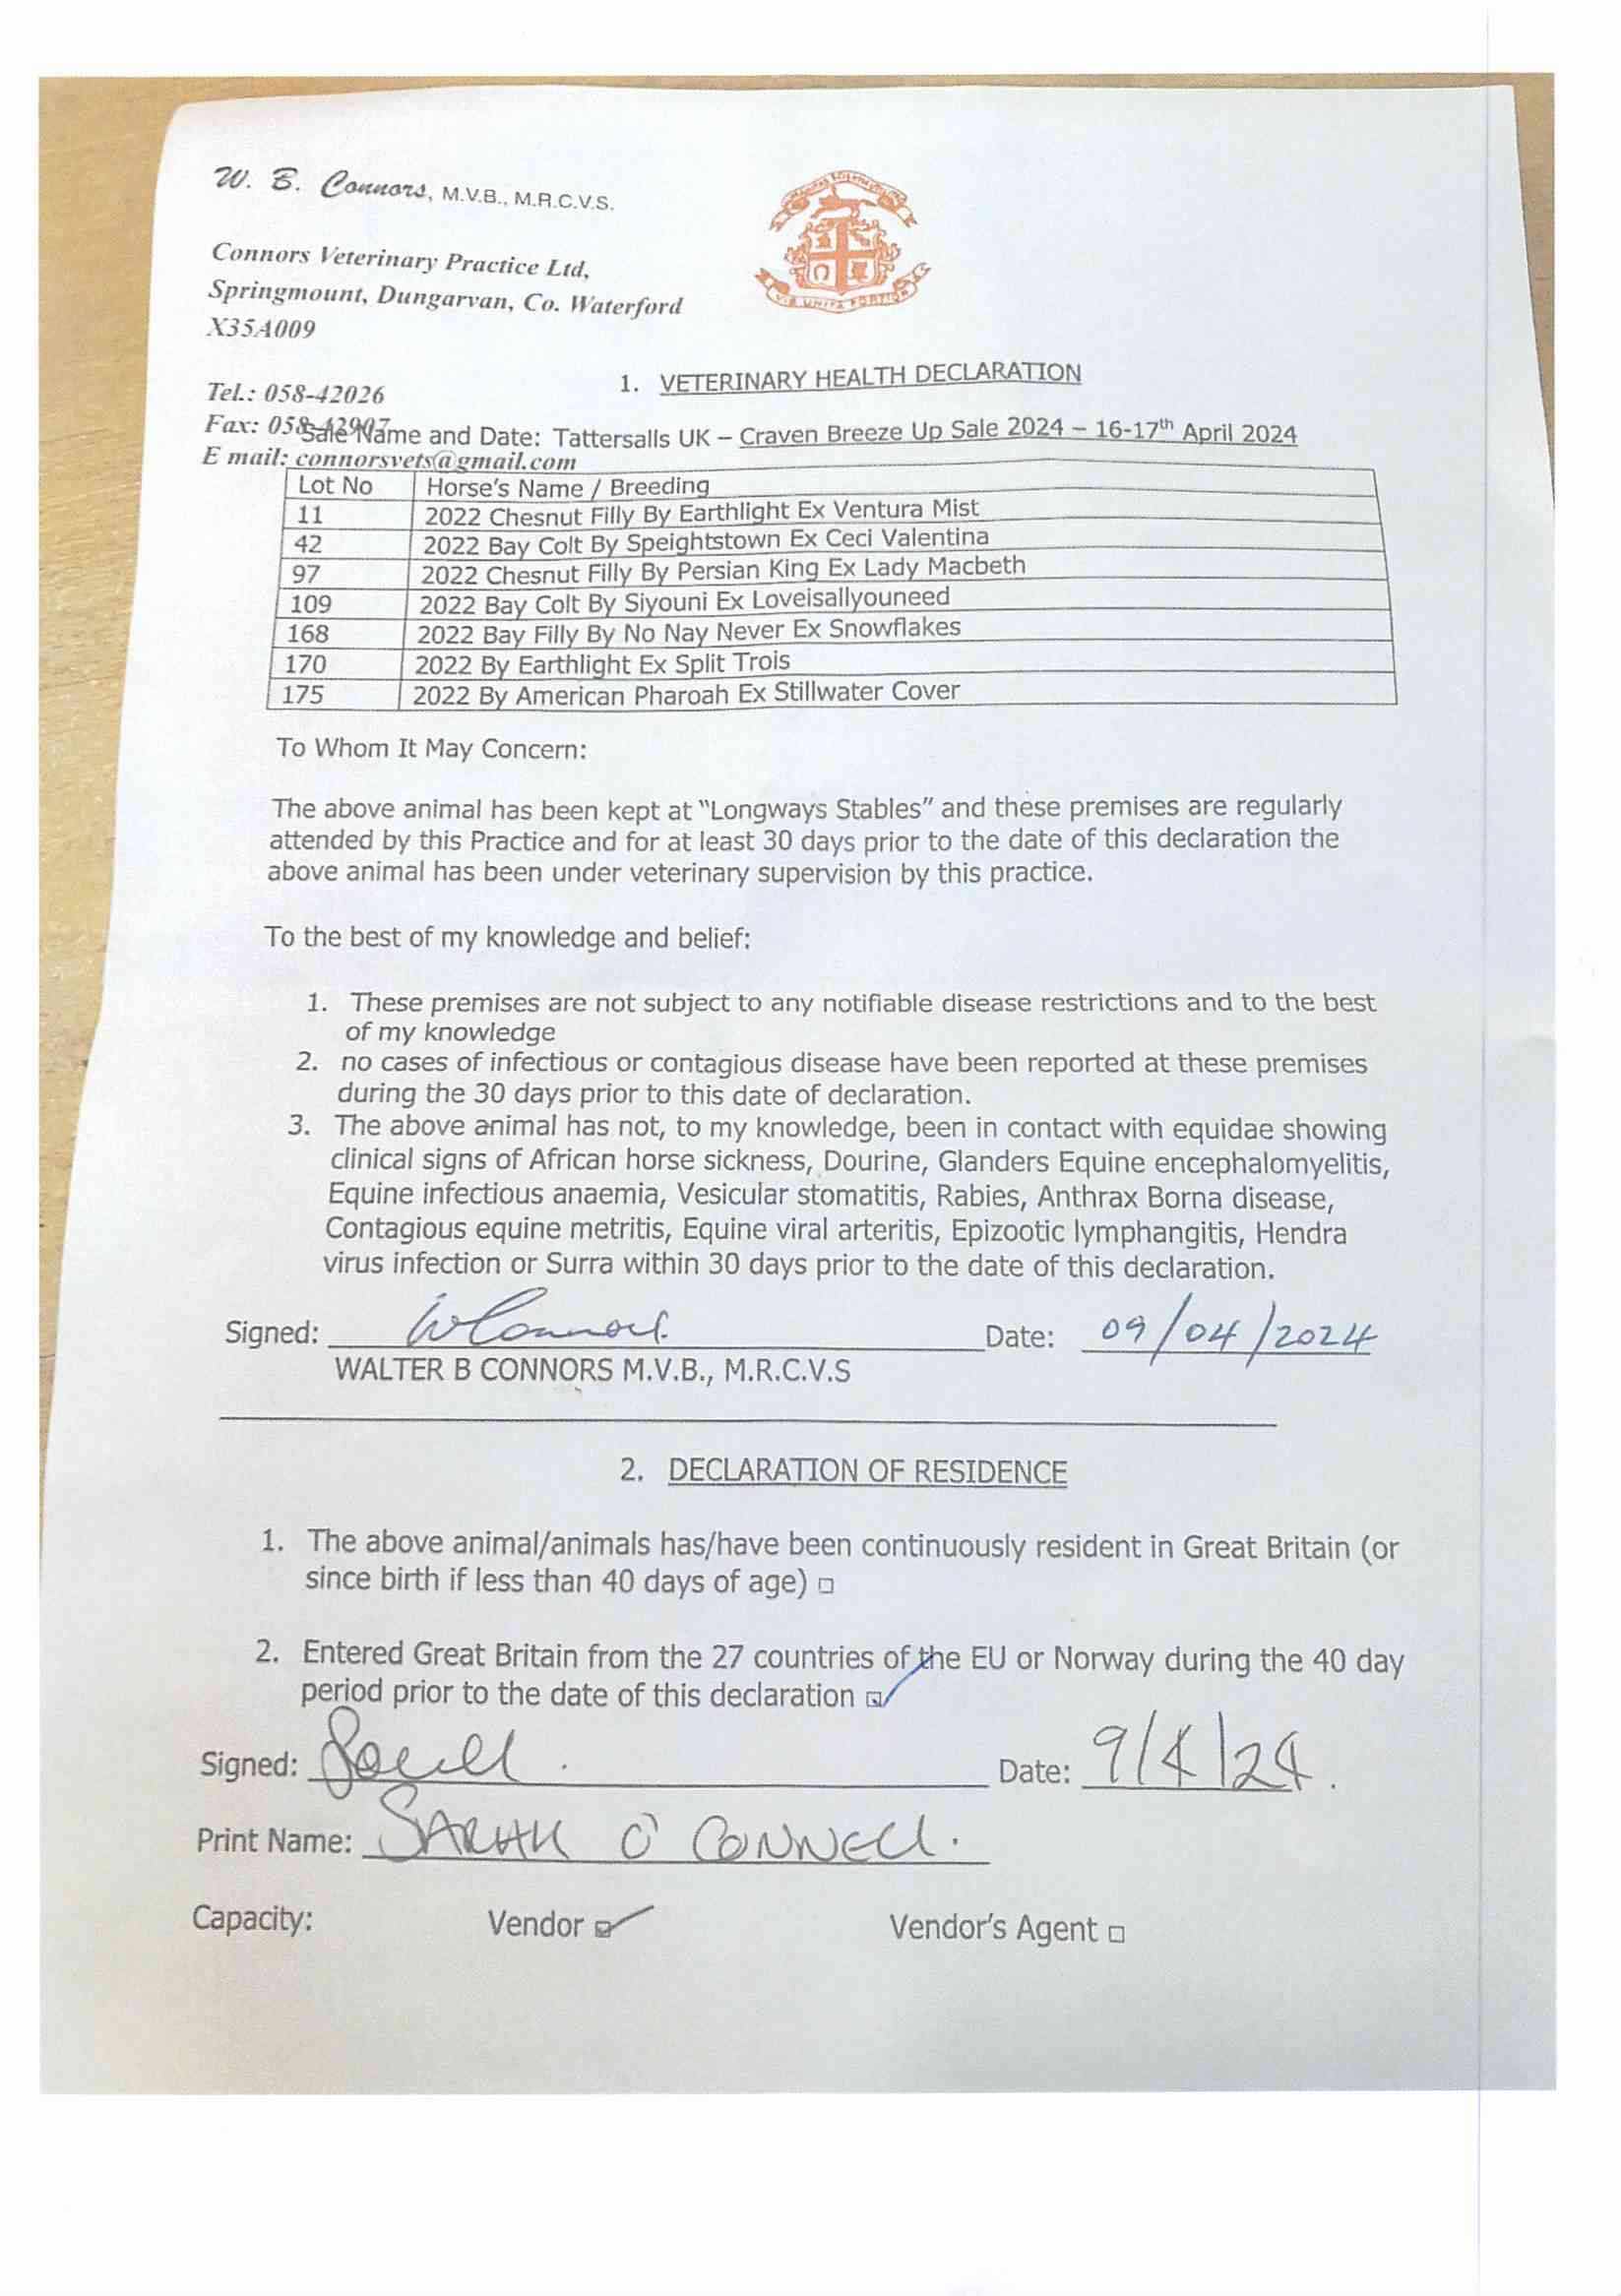 W. B. Connors, M.V.B., M.R.C.V.S.
Connors Veterinary Practice Ltd,
Springmount, Dungarvan, Co. Waterford
X35A009
VIS UNITA FORTIOR
Tel.: 058-42026
1. VETERINARY HEALTH DECLARATION
Fax: 058-42907
Sale Name and Date: Tattersalls UK – Craven Breeze Up Sale 2024 – 16-17th April 2024
E mail: connorsvets@gmail.com
Lot No Horse's Name / Breeding
11 2022 Chesnut Filly By Earthlight Ex Ventura Mist
42 2022 Bay Colt By Speightstown Ex Ceci Valentina
97 2022 Chesnut Filly By Persian King Ex Lady Macbeth
109 2022 Bay Colt By Siyouni Ex Loveisallyouneed
168 2022 Bay Filly By No Nay Never Ex Snowflakes
170 2022 By Earthlight Ex Split Trois
175 2022 By American Pharoah Ex Stillwater Cover
To Whom It May Concern:
The above animal has been kept at "Longways Stables" and these premises are regularly
attended by this Practice and for at least 30 days prior to the date of this declaration the
above animal has been under veterinary supervision by this practice.
To the best of my knowledge and belief:
1. These premises are not subject to any notifiable disease restrictions and to the best
of my knowledge
2. no cases of infectious or contagious disease have been reported at these premises
during the 30 days prior to this date of declaration.
3. The above animal has not, to my knowledge, been in contact with equidae showing
clinical signs of African horse sickness, Dourine, Glanders Equine encephalomyelitis,
Equine infectious anaemia, Vesicular stomatitis, Rabies, Anthrax Borna disease,
Contagious equine metritis, Equine viral arteritis, Epizootic lymphangitis, Hendra
virus infection or Surra within 30 days prior to the date of this declaration.
Signed: WConnors Date: 09/04/2024
WALTER B CONNORS M.V.B., M.R.C.V.S
2. DECLARATION OF RESIDENCE
1. The above animal/animals has/have been continuously resident in Great Britain (or
since birth if less than 40 days of age)
2. Entered Great Britain from the 27 countries of the EU or Norway during the 40 day
period prior to the date of this declaration
Signed: Date: 9/4/24.
Print Name: SARAH O'CONNELL.
Capacity: Vendor Vendor's Agent